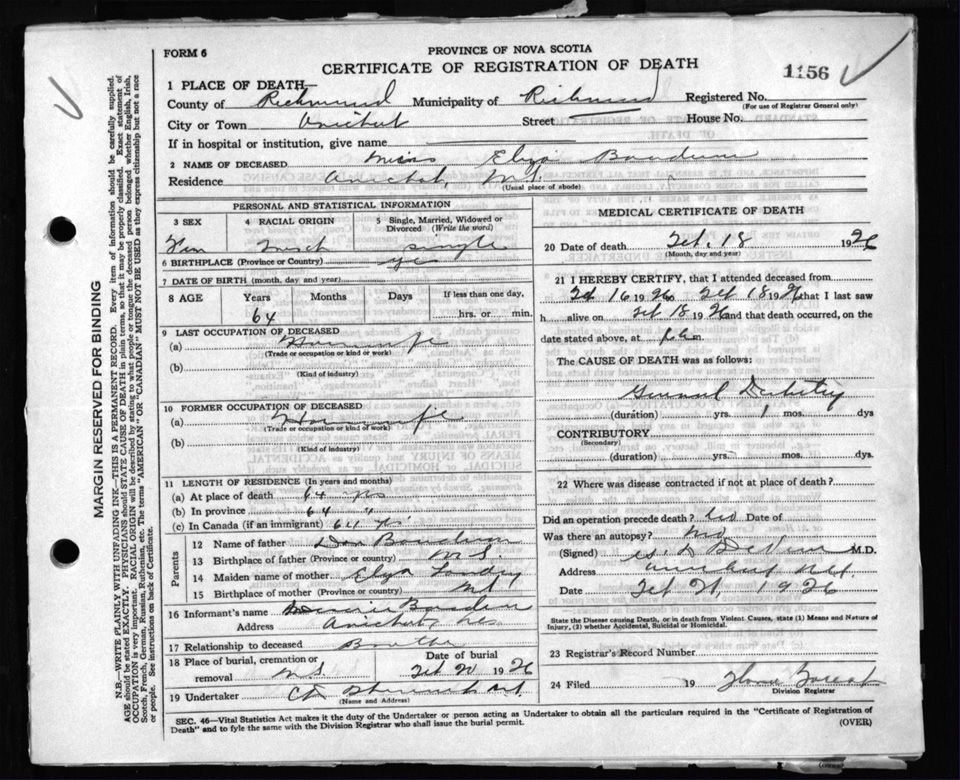 FORM 6
PROVINCE OF NOVA SCOTIA
CERTIFICATE OF REGISTRATION OF DEATH
1156
1 PLACE OF DEATH
County of Richmond Municipality of Richmond Registered No.
(For use of Registrar General only)
City or Town Arichat Street House No.
If in hospital or institution, give name
2 NAME OF DECEASED Miss Eliza
Residence Arichat, N.S.
(Usual place of abode)
PERSONAL AND STATISTICAL INFORMATION
3 SEX 4 RACIAL ORIGIN 5 Single, Married, Widowed or Divorced (Write the word)
French single
6 BIRTHPLACE (Province or Country)
7 DATE OF BIRTH (month, day and year)
8 AGE Years Months Days If less than one day,
64 hrs. or min.
9 LAST OCCUPATION OF DECEASED
(a)
(Trade or occupation or kind or work)
(b)
(Kind of industry)
10 FORMER OCCUPATION OF DECEASED
(a)
(Trade or occupation or kind of work)
(b)
(Kind of industry)
11 LENGTH OF RESIDENCE (In years and months)
(a) At place of death 64 yrs
(b) In province 64 "
(c) In Canada (if an immigrant) 64
Parents
12 Name of father
13 Birthplace of father (Province or country) N.S.
14 Maiden name of mother Eliza Landry
15 Birthplace of mother (Province or country)
16 Informant's name
Address Arichat, N.S.
17 Relationship to deceased
18 Place of burial, cremation or removal N.S. Date of burial Feb 20 1926
19 Undertaker
(Name and Address)
MEDICAL CERTIFICATE OF DEATH
20 Date of death Feb. 18 1926
(Month, day and year)
21 I HEREBY CERTIFY, that I attended deceased from
Feb 16 1926 to Feb 18 1926 that I last saw
h alive on Feb 18 1926 and that death occurred, on the
date stated above, at m.
The CAUSE OF DEATH was as follows:
General Debility
(duration) yrs. 1 mos. dys
CONTRIBUTORY
(Secondary)
(duration) yrs mos. dys.
22 Where was disease contracted if not at place of death?
Did an operation precede death? No Date of
Was there an autopsy? No
(Signed) M.D.
Address Arichat N.S.
Date Feb 21, 1926
State the Disease causing Death, or in death from Violent Causes, state (1) Means and Nature of
Injury, (2) whether Accidental, Suicidal or Homicidal.
23 Registrar's Record Number
24 Filed 19
Division Registrar
SEC. 46—Vital Statistics Act makes it the duty of the Undertaker or person acting as Undertaker to obtain all the particulars required in the "Certificate of Registration of
Death" and to fyle the same with the Division Registrar who shall issue the burial permit. (OVER)
MARGIN RESERVED FOR BINDING
N.B.—WRITE PLAINLY WITH UNFADING INK—THIS IS A PERMANENT RECORD. Every item of information should be carefully supplied.
AGE should be stated EXACTLY. PHYSICIANS should STATE CAUSE OF DEATH in plain terms, so that it may be properly classified. Exact statement of
OCCUPATION is very important. RACIAL ORIGIN will be described by stating to what people or tongue the deceased person belonged whether English, Irish,
Scotch, French, German, Russian, Ruthenian, etc. The terms "AMERICAN" OR "CANADIAN" MUST NOT BE USED as they express citizenship but not a race
or people. See instructions on back of Certificate.